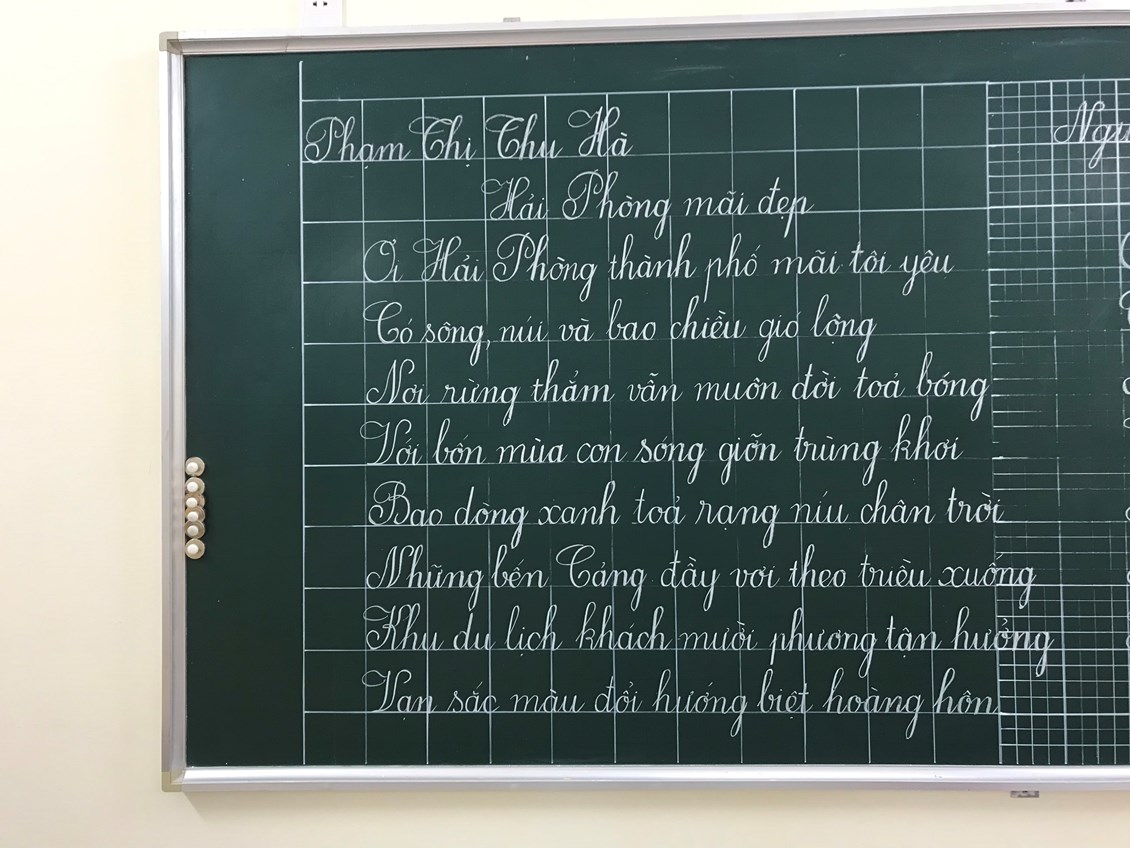 Phạm Thị Thu Hà
Hải Phòng mãi đẹp
Ơi Hải Phòng thành phố mãi tôi yêu
Có sông, núi và bao chiều gió lộng
Nơi rừng thẳm vẫn muôn đời toả bóng
Với bốn mùa con sóng giỡn trùng khơi
Bao dòng xanh toả rạng níu chân trời
Những bến Cảng đầy vơi theo triều xuống
Khu du lịch khách mười phương tận hưởng
Vạn sắc màu đổi hướng biệt hoàng hôn